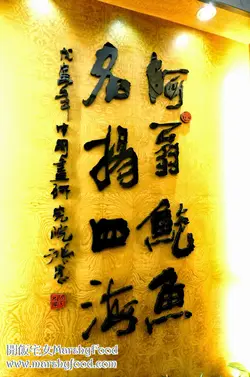 阿翁鮑魚
名揚四海
戊寅年中国畫研究院
開飯宅女MarshgFood
www.marshgfood.com